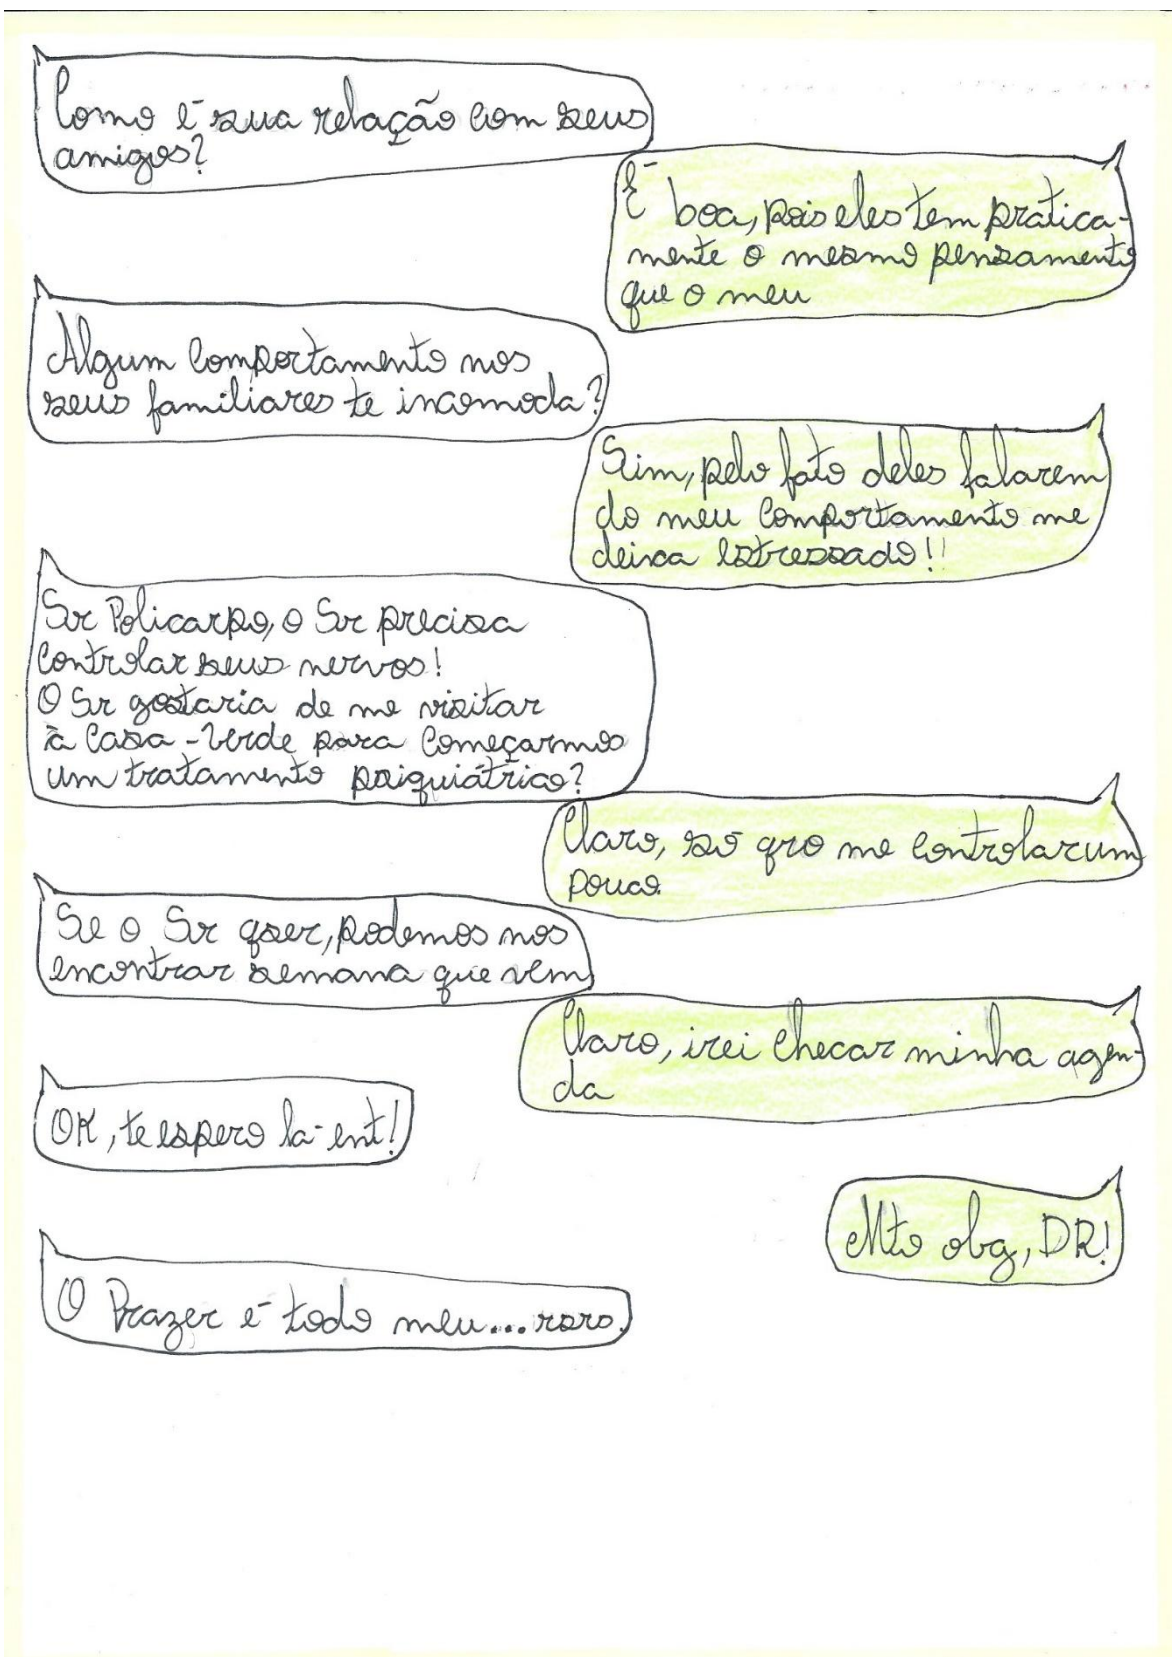 Como é sua relação com seus
amigos?
É boa, pois eles tem pratica-
mente o mesmo pensamento
que o meu
Algum comportamento nos
seus familiares te incomoda?
Sim, pelo fato deles falarem
do meu comportamento me
deixa estressado!!
Sr Policarpo, o Sr precisa
controlar seus nervos!
O Sr gostaria de me visitar
à Casa-Verde para começarmos
um tratamento psiquiátrico?
Claro, só qro me controlar um
pouco.
Se o Sr qser, podemos nos
encontrar semana que vem
Claro, irei checar minha agen-
da
OK, te espero lá ent!
Mto obg, DR!
O Prazer é todo meu...rsrs.